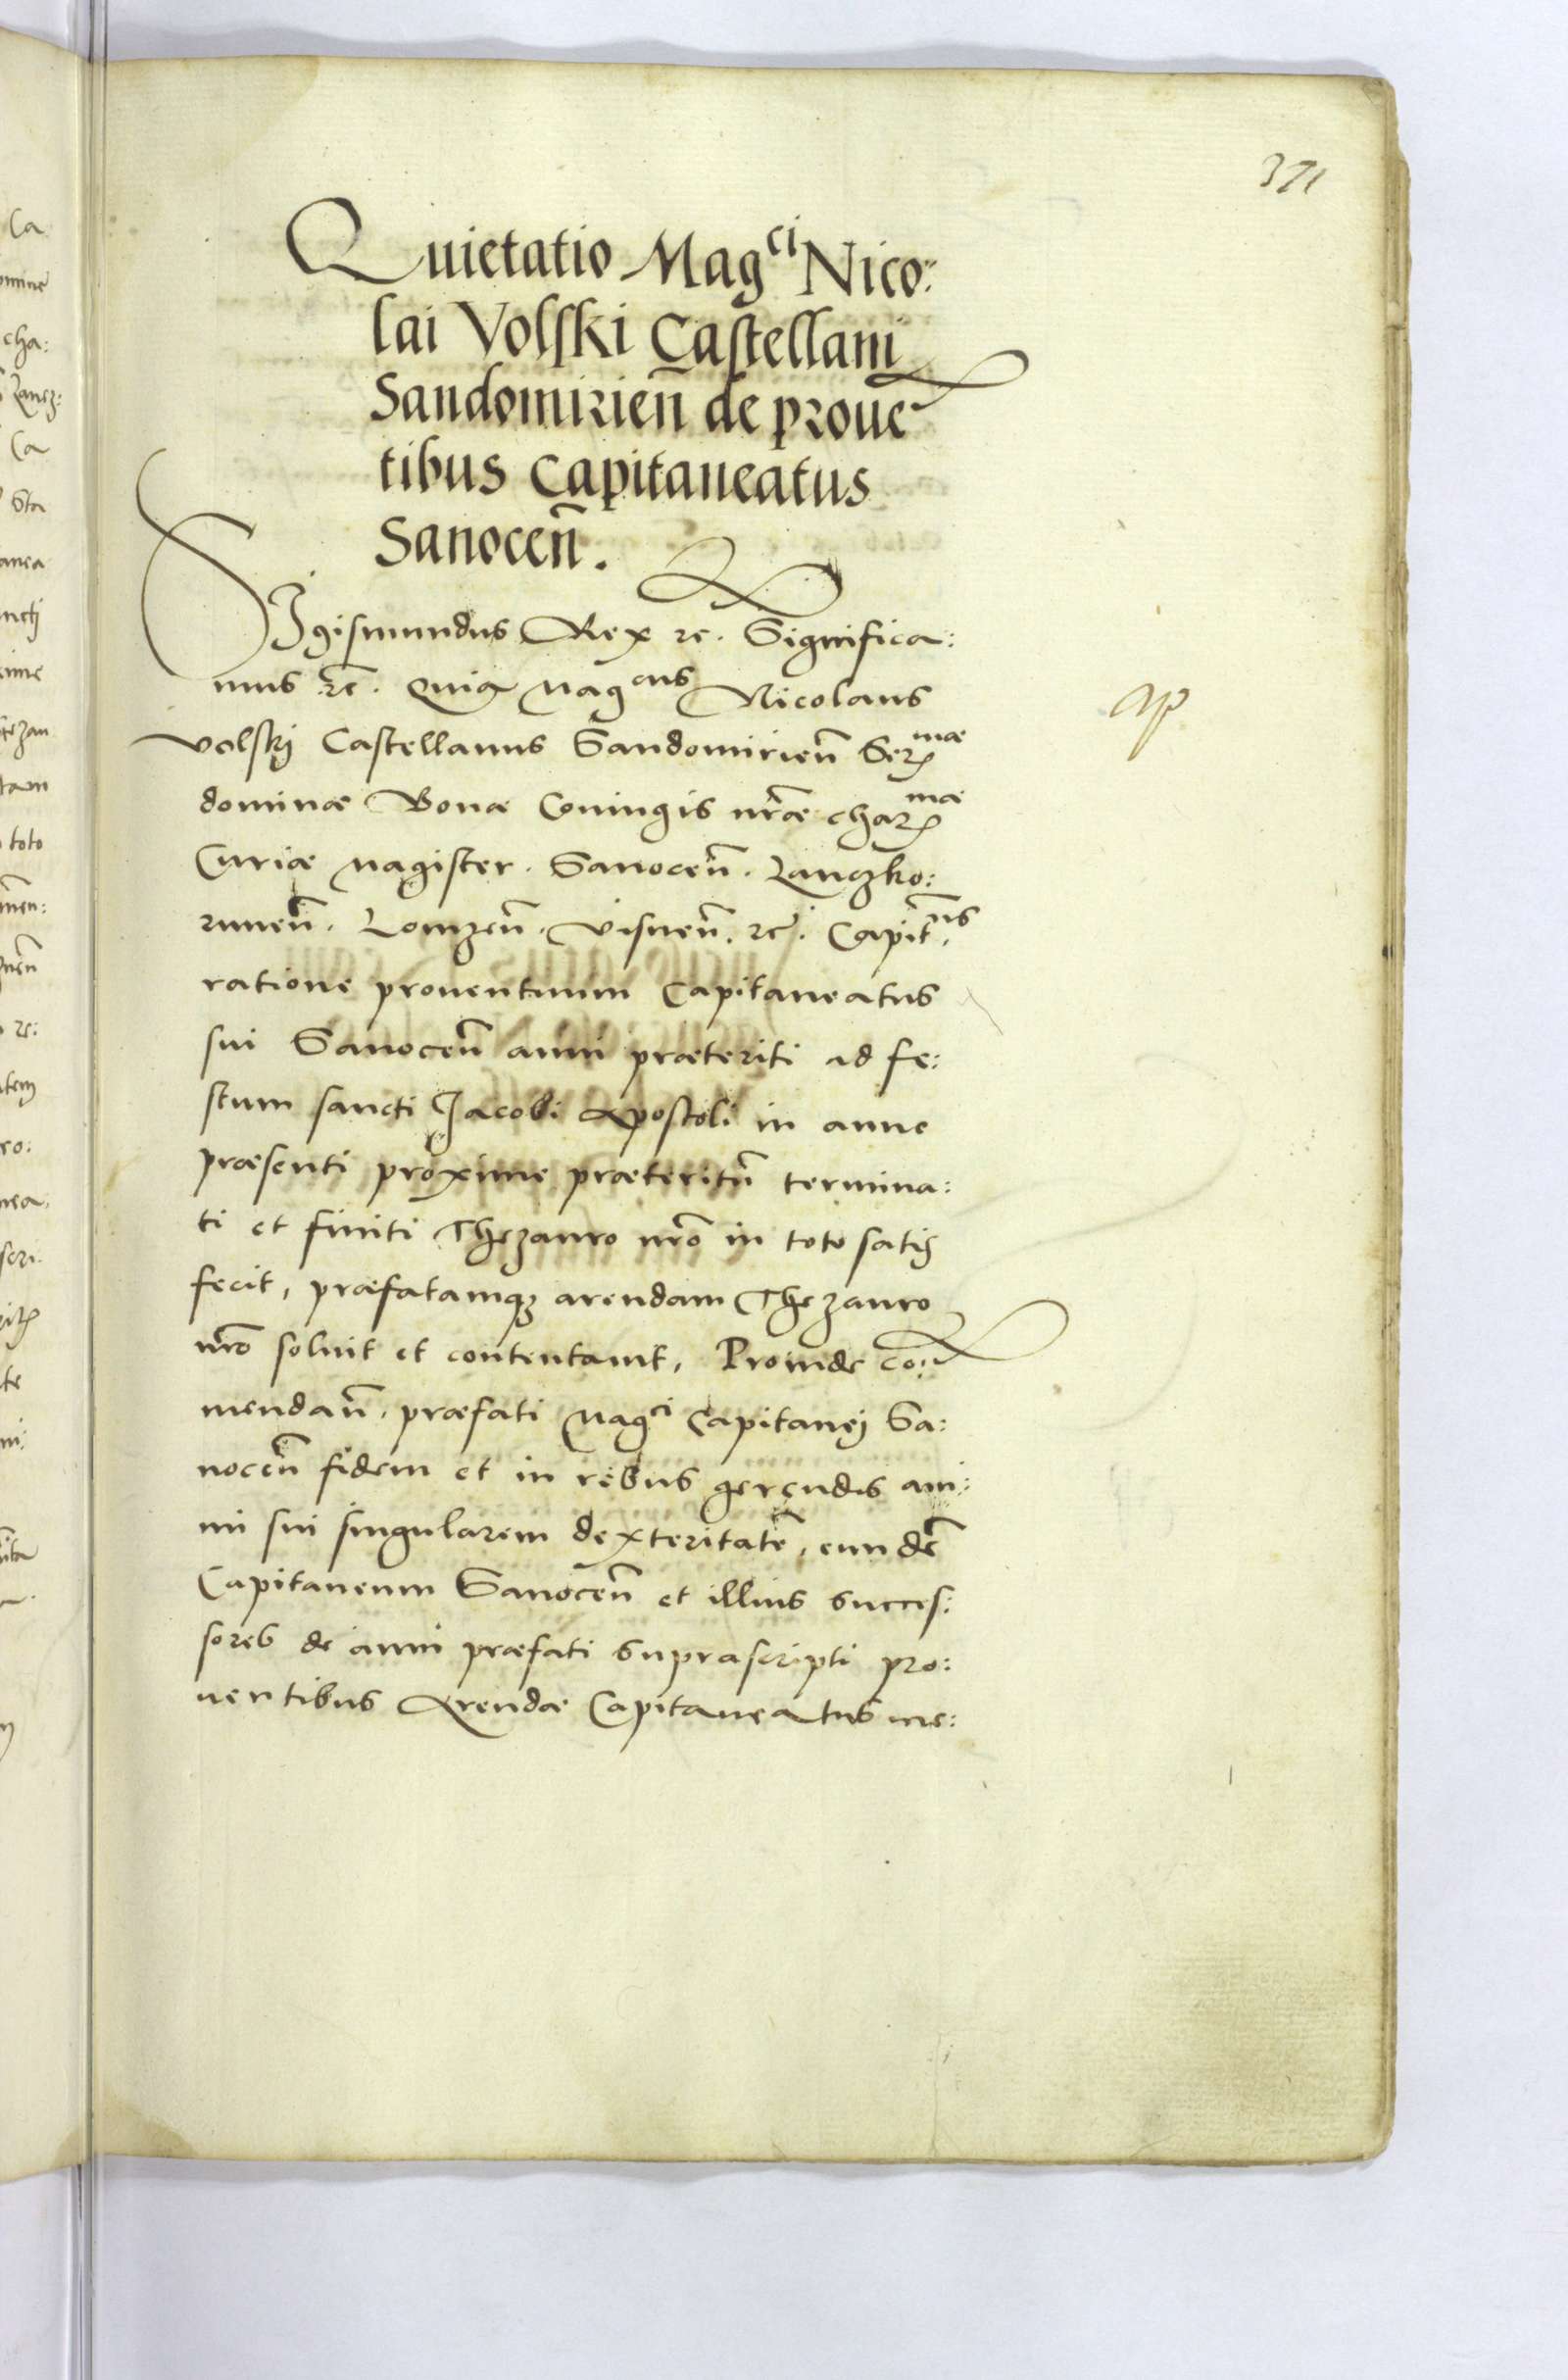 371
Quietatio Magci Nico:
lai Volski Castellani
Sandomirien̄ de proue
tibus Capitaneatus
Sanocen̄.
SIgismundus Rex rc. Significa:
mus rc̄. Quia Magcus Nicolaus
Volskj Castellanus Sandomirien̄ Sermae
dominae Bonae Coniugis nr̄ae charmae
Curiae Magister. Sanocen̄. Lanczko:
runen̄. Lomzen̄. Visnen̄. rc̄. Capitnus.
ratione prouentuum Capitaneatus
sui Sanocen̄ anni praeteriti ad fe:
stum sancti Jacobi Apostoli in anno
praesenti proxime praeteritū termina:
ti et finiti Thezauro nr̄o in toto satis
fecit, praefatamqz arendam Thezauro
nr̄o soluit et contentauit, Proinde co:
mendan̄. praefati Magci Capitanej Sa:
nocen̄ fidem et in rebus gerendis ani:
mi sui singularem dexteritatē, eundē
Capitaneum Sanocen̄ et illius succes:
sores de anni praefati suprascripti pro:
uentibus Arendae Capitaneatus me: